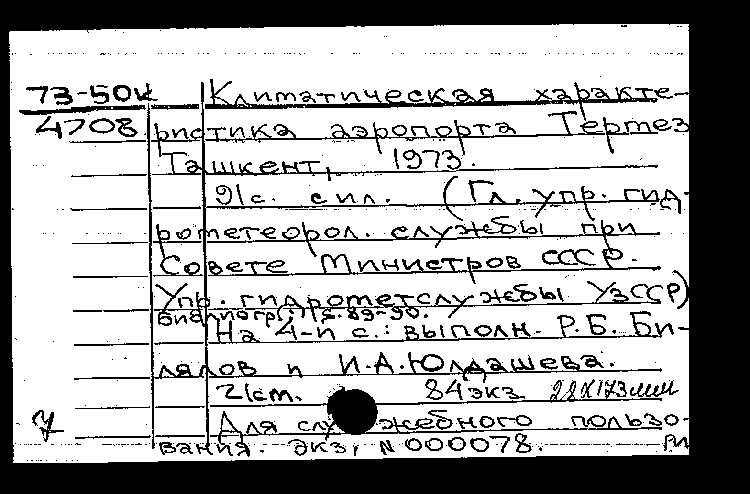 73-50к Климатическая характе-
4708 ристика аэропорта Термез
Ташкент, 1973.
91с. с ил. (Гл. упр. гид-
рометеорол. службы при
Совете Министров СССР.
Упр. гидрометслужбы УзССР)
Библиогр.: с. 89-90.
На 4-й с.: выполн. Р.Б. Би-
лялов и И.А. Юлдашева.
21см. 84экз
Для служебного пользо-
вания. Экз, N 000078.